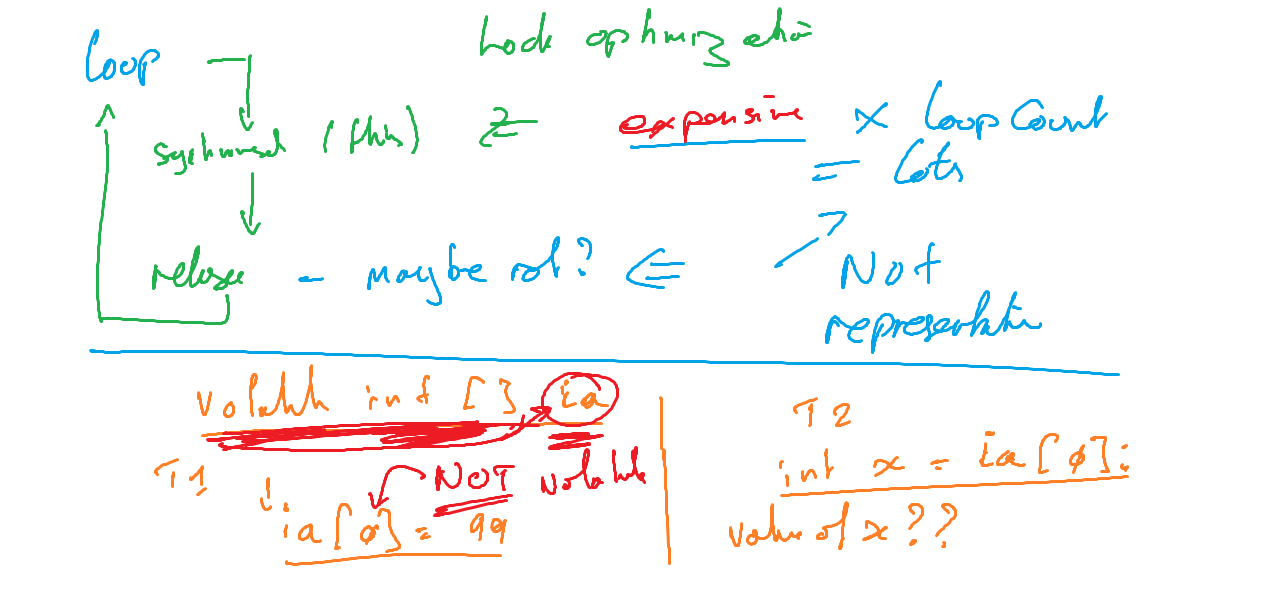 Lock optimization
Loop
synchronized (this) expensive x Loop Count
= Lots
release - maybe not? Not
representative
volatile int [] ia
T2
T1 NOT volatile
int x = ia[0];
ia[0] = 99
value of x ??